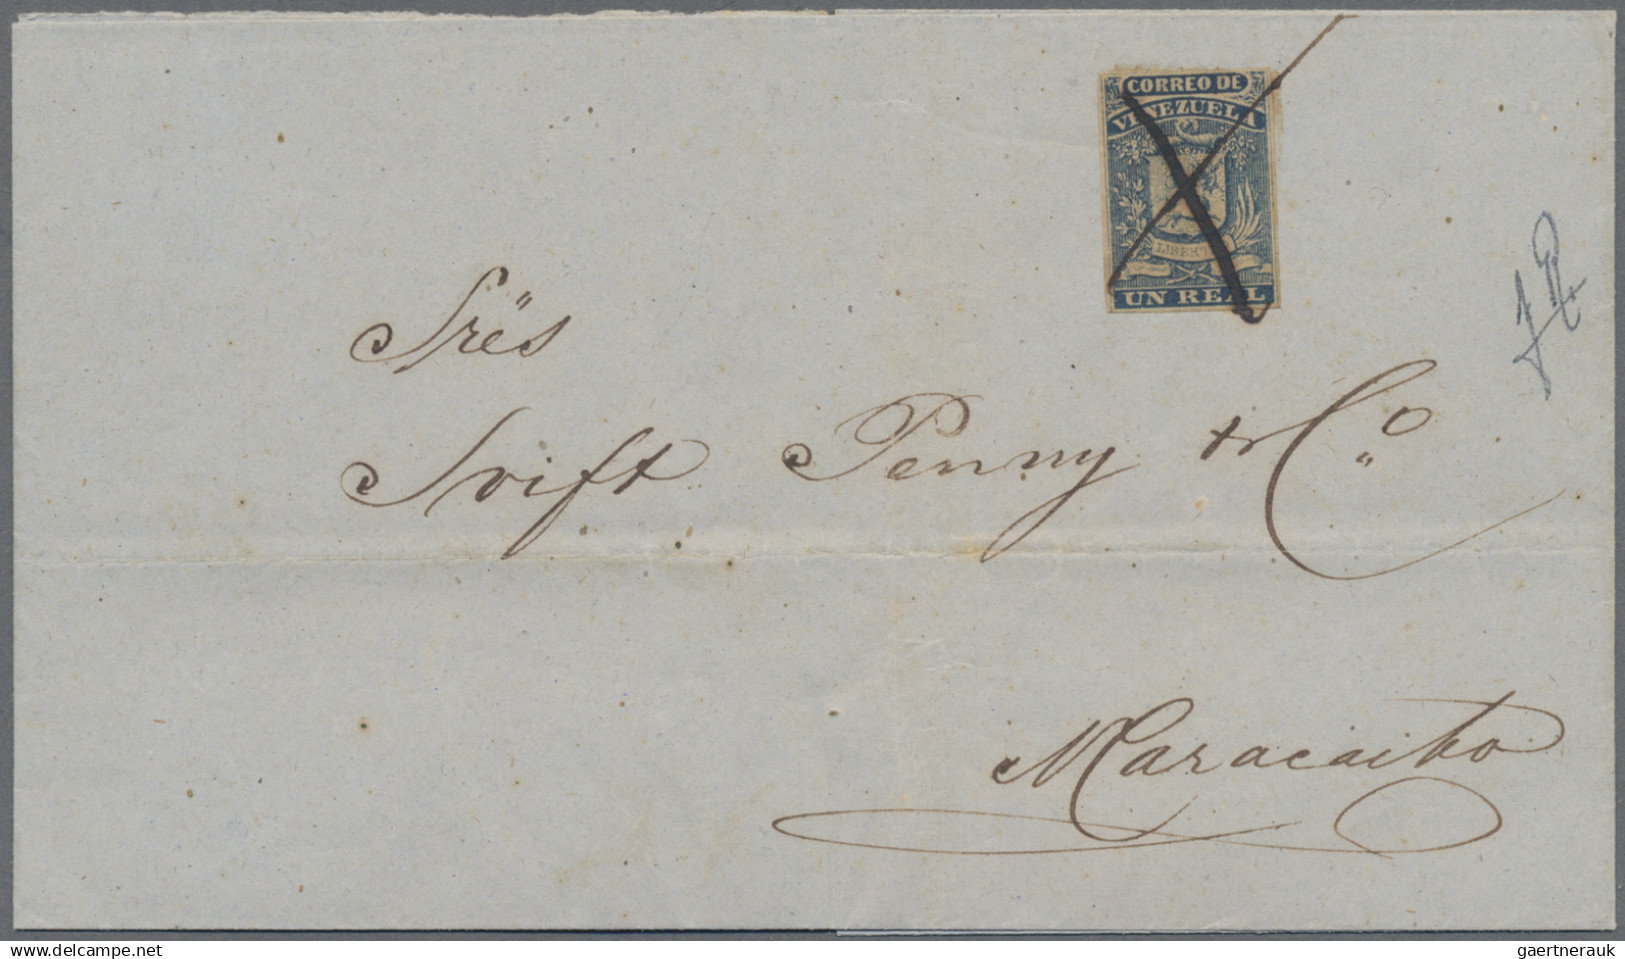 CORREO DE
VENEZUELA
LIBERT
UN REAL
Srēs
Svift Penny & Cº
Maracaibo
delcampe.net
gaertnerauk